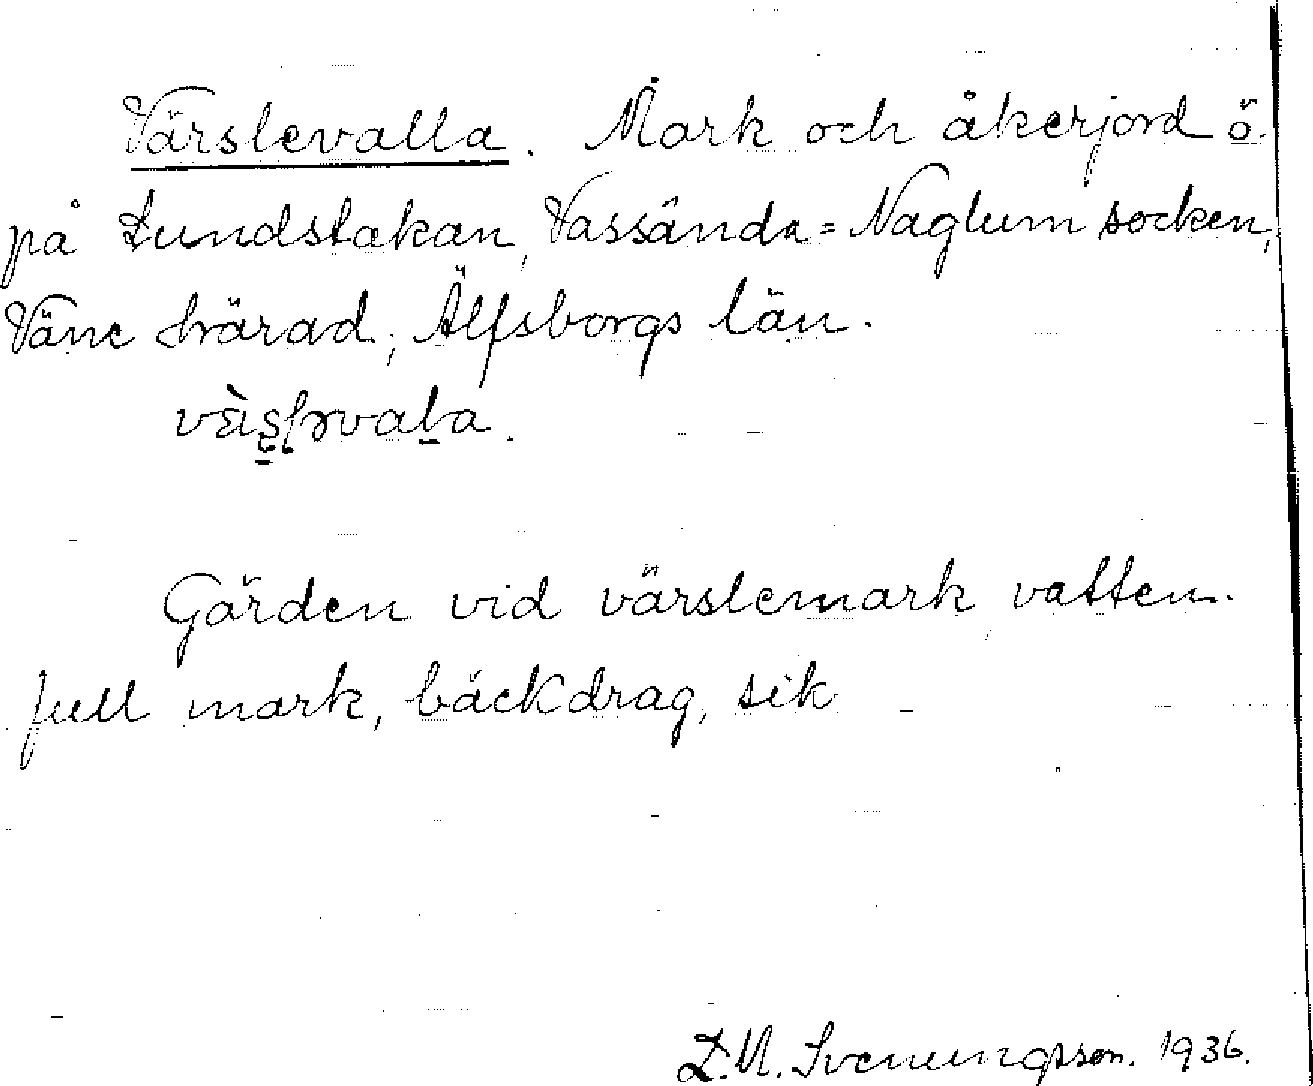 Värslevalla. Mark och åkerjord ö.
på Lundstakan, Vassända=Naglum socken,
Väne härad, Älfsborgs län.
Gärden vid värslemark vatten-
full mark, bäckdrag, sik
L.M. Svenungsson. 1936.